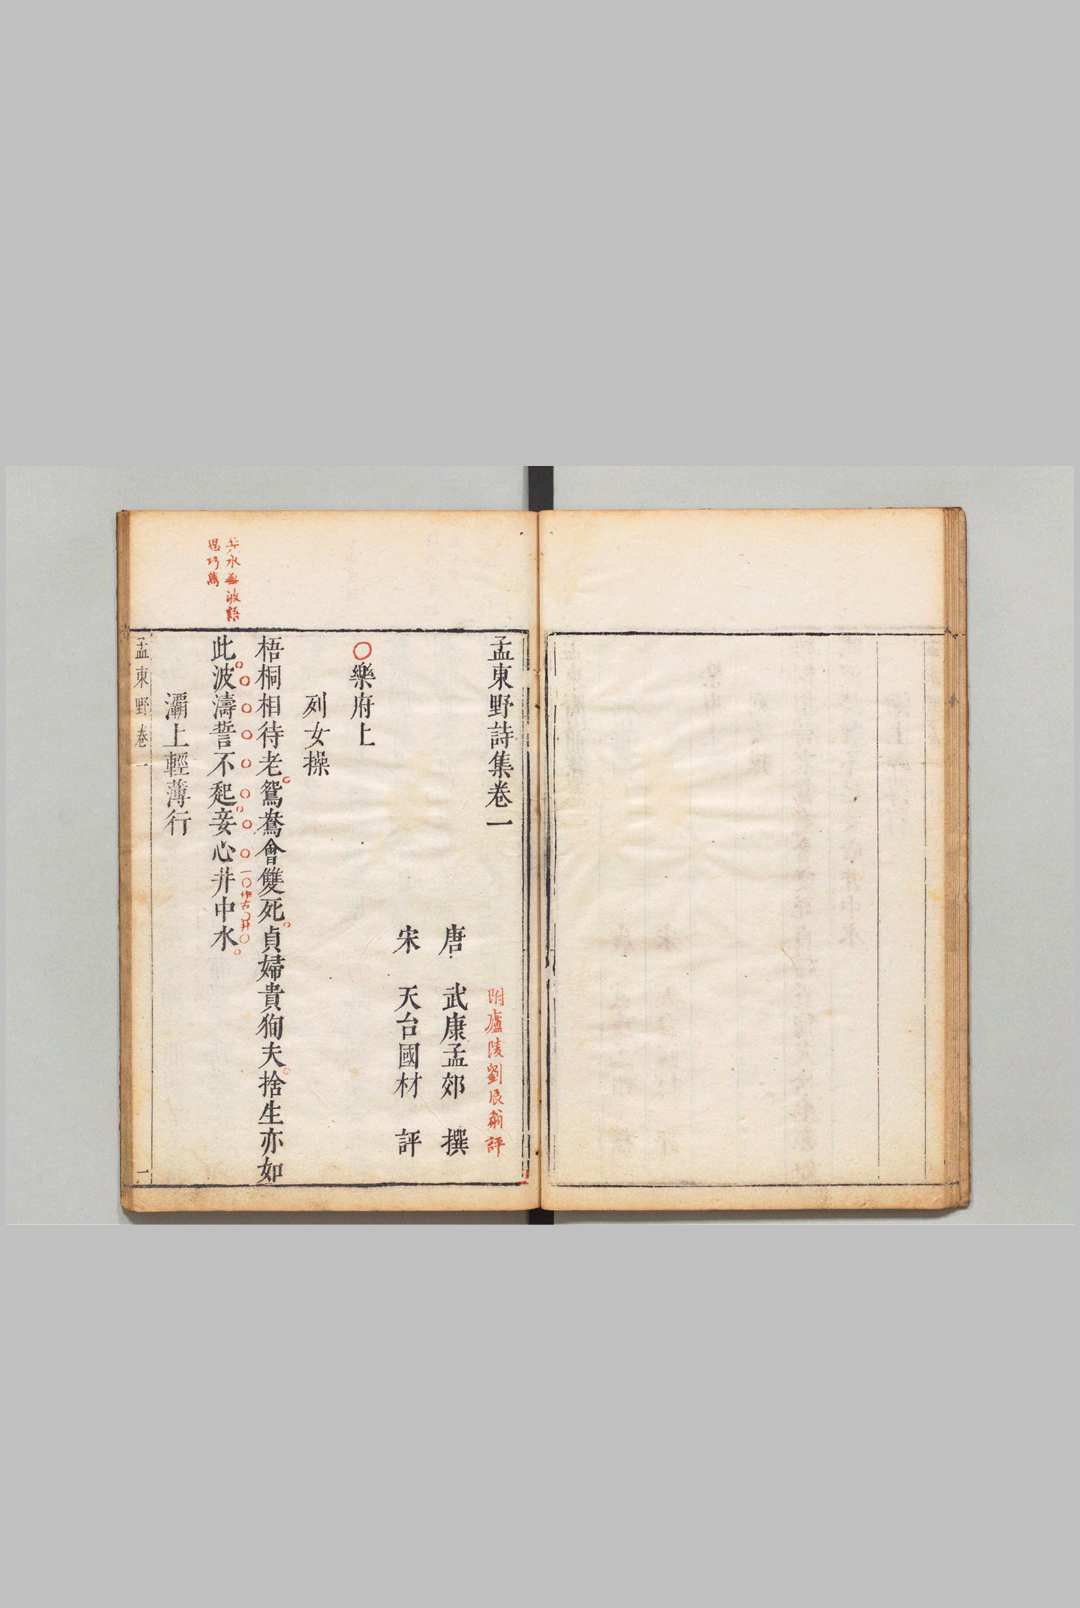 孟東野詩集卷一
附廬陵劉辰翁評
唐 武康孟郊 撰
宋 天台國材 評
○樂府上
列女操
梧桐相待老鴛鴦會雙死貞婦貴狥夫捨生亦如
此波濤誓不起妾心井中水
一作古井
井水無波語
思巧雋
灞上輕薄行
孟東野卷一
一